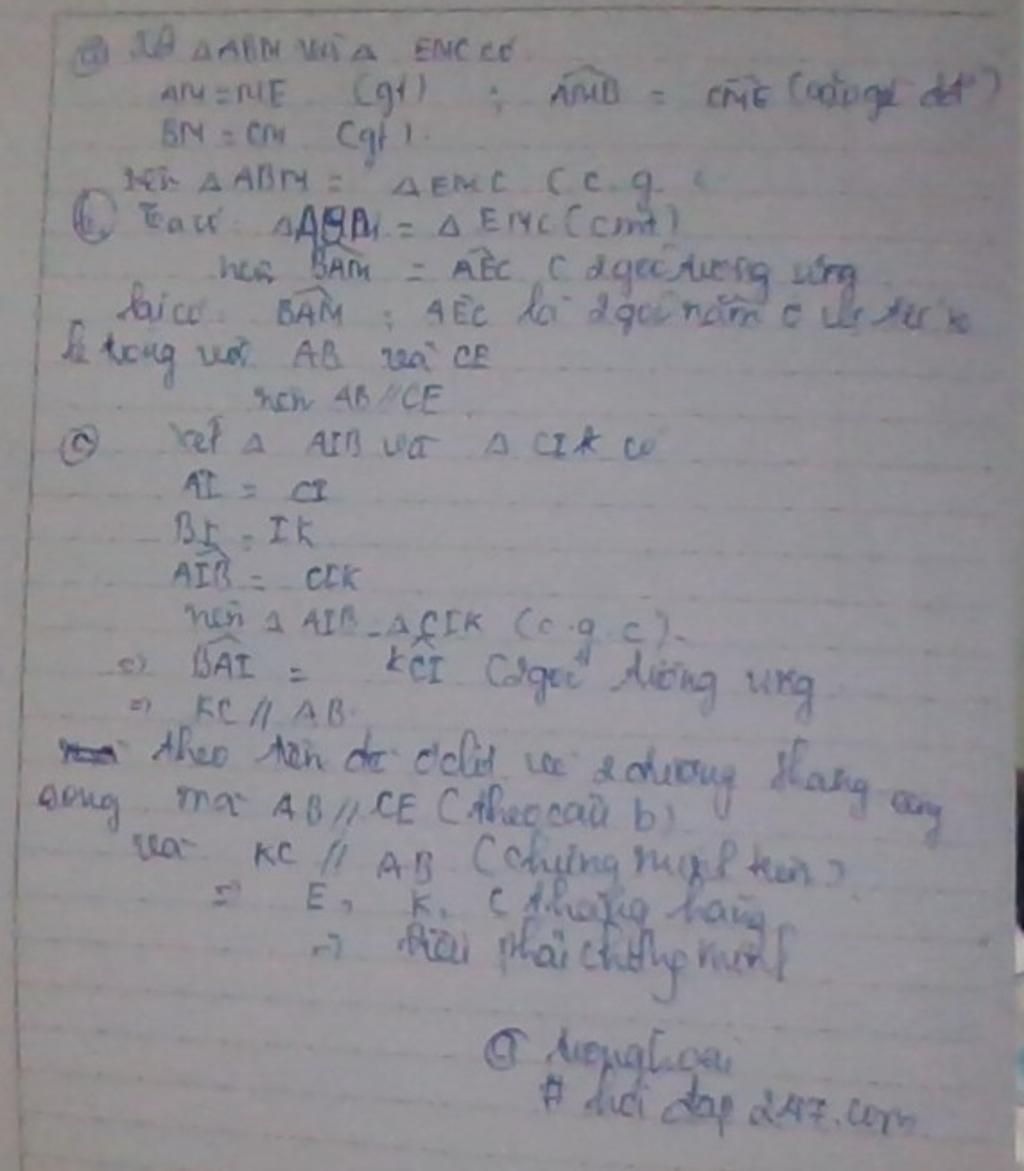 a) Xét △ ABM và △ EMC có
AM = ME (gt) ; AMB = CME (đđ)
BM = CM (gt).
nên △ ABM = △ EMC (c.g.
b, Ta có △ ABM = △ EMC (cmt)
nên BAM = AEC (2 góc tương ứng
lại có BAM ; AEC là 2 góc nằm ở
trong với AB và CE
nên AB // CE
c) Xét △ AIB và △ CIK có
AI = CI
BI = IK
AIB = CIK
nên △ AIB = △ CIK (c.g.c).
=> BAI = KCI (2 góc tương ứng
=> KC // AB.
theo tiên đề ơclit 2 đường thẳng
song mà AB // CE (theo câu b)
và KC // AB (chứng minh trên)
=> E, K, C thẳng hàng
=> điều phải chứng minh
# hoidap247.com